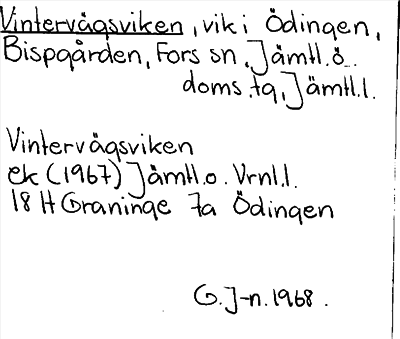 Vintervägsviken, vik i Ödingen,
Bispgården, Fors sn, Jämtl.ö.
doms.tg, Jämtl.l.
Vintervägsviken
ek (1967) Jämtl.o. Vrnl.l.
18 H Graninge 7a Ödingen
G. J-n. 1968.